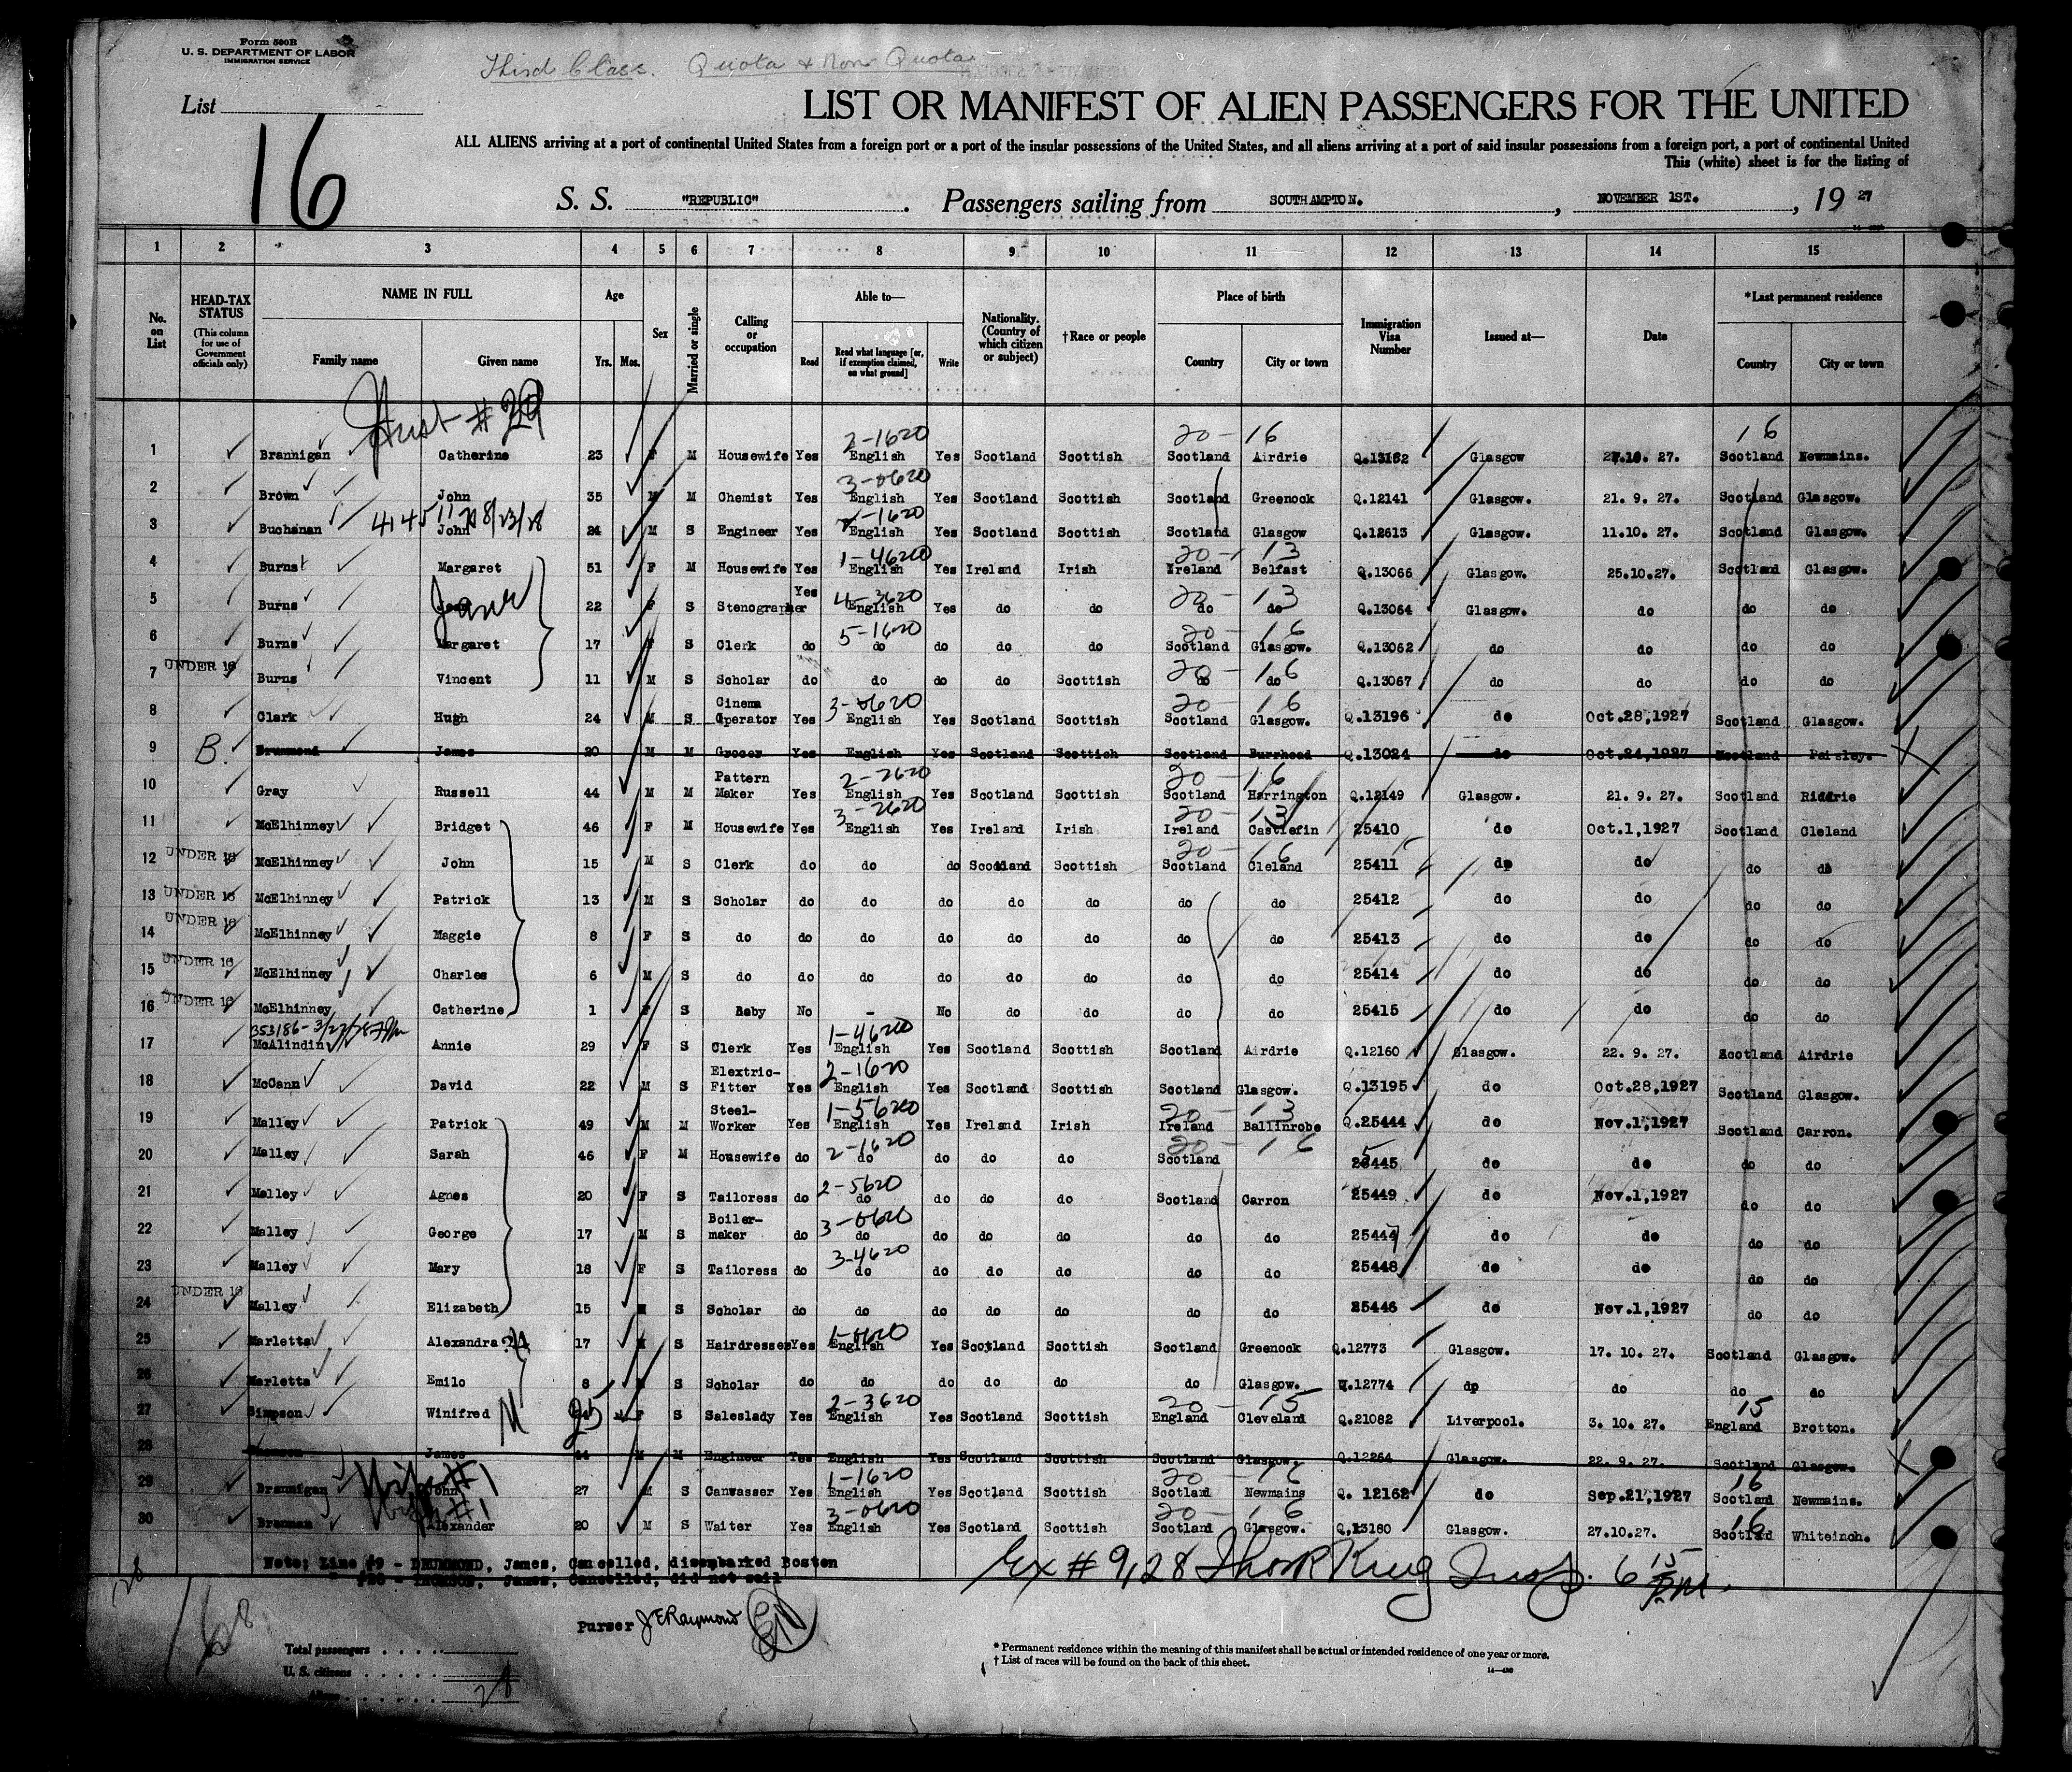 Form 500B
U. S. DEPARTMENT OF LABOR
IMMIGRATION SERVICE
Third Class. Quota & Non Quota
List
16
LIST OR MANIFEST OF ALIEN PASSENGERS FOR THE UNITED
ALL ALIENS arriving at a port of continental United States from a foreign port or a port of the insular possessions of the United States, and all aliens arriving at a port of said insular possessions from a foreign port, a port of continental United
This (white) sheet is for the listing of
S. S. "REPUBLIC". Passengers sailing from SOUTHAMPTON., NOVEMBER 1ST., 19 27
1 2 3 4 5 6 7 8 9 10 11 12 13 14 15
No. on List
HEAD-TAX STATUS (This column for use of Government officials only)
NAME IN FULL Family name Given name
Age Yrs. Mos.
Sex
Married or single
Calling or occupation
Able to— Read Read what language [or, if exemption claimed, on what ground] Write
Nationality. (Country of which citizen or subject)
†Race or people
Place of birth Country City or town
Immigration Visa Number
Issued at—
Date
*Last permanent residence Country City or town
# 29
2-1620 20-16 16
1 Brannigan Catherine 23 F M Housewife Yes English Yes Scotland Scottish Scotland Airdrie Q.13182 Glasgow 27.10. 27. Scotland Newmains.
3-0620
2 Brown John 35 M M Chemist Yes English Yes Scotland Scottish Scotland Greenock Q.12141 Glasgow. 21. 9. 27. Scotland Glasgow.
8/23/28 1620
3 Buchanan John 24 M S Engineer Yes English Yes Scotland Scottish Scotland Glasgow Q.12613 Glasgow. 11.10. 27. Scotland Glasgow.
1-4620 20-13
4 Burns Margaret 51 F M Housewife Yes English Yes Ireland Irish Ireland Belfast Q.13066 Glasgow. 25.10.27. Scotland Glasgow.
4-3620 20-13
5 Burns Jane 22 F S Stenographer Yes English Yes do do do do Q.13064 Glasgow. do do do
5-1620 20-16
6 Burns Margaret 17 F S Clerk do do do do do Scotland Glasgow. Q.13062 do do do do
20-16
7 UNDER 16 Burns Vincent 11 M S Scholar do do do do Scottish do do Q.13067 do do do do
3-0620 20-16
8 Clark Hugh 24 M S Cinema Operator Yes English Yes Scotland Scottish Scotland Glasgow. Q.13196 do Oct.28,1927 Scotland Glasgow.
9 B. Drummond James 20 M M Grocer Yes English Yes Scotland Scottish Scotland Barrhead Q.13024 do Oct.24,1927 Scotland Paisley.
2-2620 20-16
10 Gray Russell 44 M M Pattern Maker Yes English Yes Scotland Scottish Scotland Harrington Q.12149 Glasgow. 21. 9. 27. Scotland Riddrie
3-2620 20-13
11 McElhinney Bridget 46 F M Housewife Yes English Yes Ireland Irish Ireland Castlefin 25410 do Oct.1,1927 Scotland Cleland
20-16
12 UNDER 16 McElhinney John 15 M S Clerk do do do Scotland Scottish Scotland Cleland 25411 do do do do
13 UNDER 16 McElhinney Patrick 13 M S Scholar do do do do do do do 25412 do do do do
14 UNDER 16 McElhinney Maggie 8 F S do do do do do do do do 25413 do do do do
15 UNDER 16 McElhinney Charles 6 M S do do do do do do do do 25414 do do do do
16 UNDER 16 McElhinney Catherine 1 F S Baby No - No do do do do 25415 do do do do
353186 1-4620
17 McAlindin Annie 29 F S Clerk Yes English Yes Scotland Scottish Scotland Airdrie Q.12160 Glasgow. 22. 9. 27. Scotland Airdrie
2-1620
18 McCann David 22 M S Elextric-Fitter Yes English Yes Scotland Scottish Scotland Glasgow. Q.13195 do Oct.28,1927 Scotland Glasgow.
1-5620 20-13
19 Malley Patrick 49 M M Steel-Worker Yes English Yes Ireland Irish Ireland Ballinrobe Q.25444 do Nov.1,1927 Scotland Carron.
2-1620 20-16
20 Malley Sarah 46 F M Housewife do do do do do Scotland 25445 do do do do
2-5620
21 Malley Agnes 20 F S Tailoress do do do do do Scotland Carron 25449 do Nov.1,1927 do do
3-0620
22 Malley George 17 M S Boiler-maker do do do do do do do 25447 do do do do
3-4620
23 Malley Mary 18 F S Tailoress do do do do do do do 25448 do do do do
24 UNDER 16 Malley Elizabeth 15 S Scholar do do do do do do do 25446 do Nov.1,1927 do do
1-0620
25 Marletta Alexandra 17 S Hairdresser Yes English Yes Scotland Scottish Scotland Greenock Q.12773 Glasgow. 17. 10. 27. Scotland Glasgow.
26 Marletta Emilo 8 S Scholar do do do do do do Glasgow. 12774 do do do do
2-3620 20-15 15
27 Simpson Winifred M 25 F S Saleslady Yes English Yes Scotland Scottish England Cleveland Q.21082 Liverpool. 3. 10. 27. England Brotton.
28 James 44 M M Engineer Yes English Yes Scotland Scottish Scotland Glasgow. Q.12264 Glasgow. 22. 9. 27. Scotland Glasgow.
Wife #1 1-1620 20-16 16
29 Brannigan John 27 M S Canvasser Yes English Yes Scotland Scottish Scotland Newmains Q. 12162 do Sep.21,1927 Scotland Newmains.
#1 3-0620 20-16 16
30 Brannan Alexander 20 M S Waiter Yes English Yes Scotland Scottish Scotland Glasgow. Q.13180 Glasgow. 27.10.27. Scotland Whiteinch.
Note; Line #9 - DRUMMOND, James, Cancelled, disembarked Boston
#28 - James, Cancelled, did not sail
Ex # 9, 28 Insp. 6 15 P.M.
Purser J E Raymond
Total passengers
U. S. citizens
Aliens 28
* Permanent residence within the meaning of this manifest shall be actual or intended residence of one year or more.
† List of races will be found on the back of this sheet.